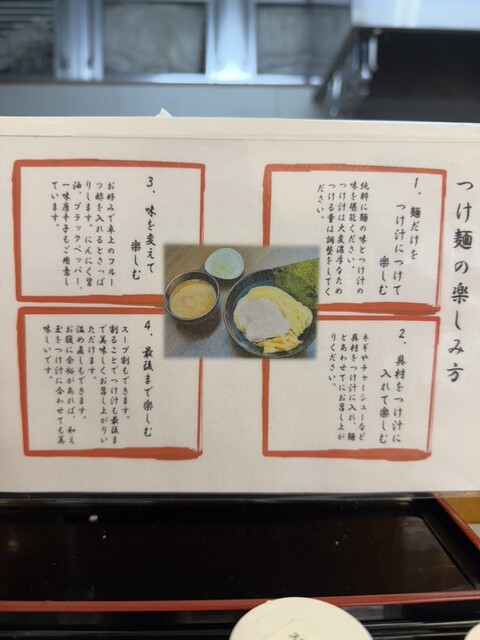 つけ麺の楽しみ方
1．麺だけを
つけ汁につけて
楽しむ
純粋に麺の味とつけ汁の
味を堪能ください。
つけ汁は大変濃厚なため
つける量は調整をしてく
ださい。
2．具材をつけ汁に
入れて楽しむ
ネギやチャーシューなど
具材をつけ汁に入れ、麺
とあわせてにお召し上が
りください。
3．味を変えて
楽しむ
お好みで卓上のフルー
ツ酢を入れるとさっぱ
りします。にんにく醤
油、ブラックペッパー、
一味唐辛子もご用意し
ています。
4．最後まで楽しむ
スープ割もできます。
割ることで、つけ汁も最後ま
で美味しくお召し上がりい
ただけます。
温め直しもできます。
お腹に余裕があれば、和え
玉をつけ汁に合わせても美
味しいです。